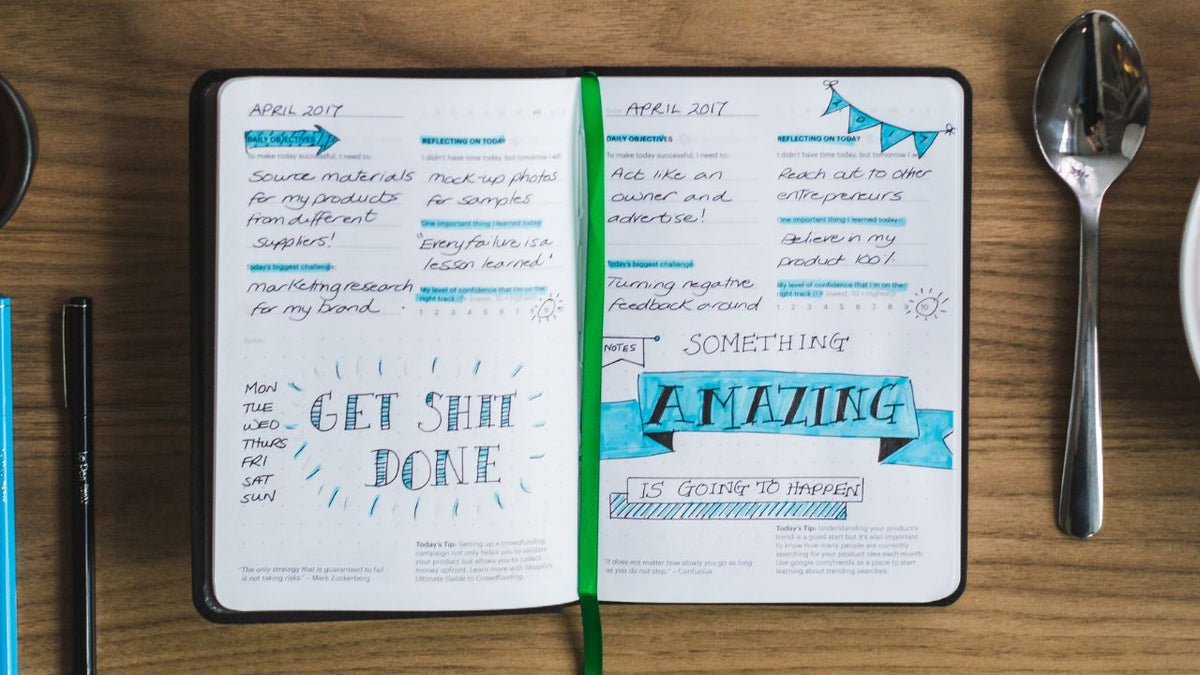 APRIL 2017
DAILY OBJECTIVES
To make today successful, I need to:
Source materials
for my products
from different
suppliers!
Today's biggest challenge
marketing research
for my brand
Notes
MON
TUE
WED
THURS
FRI
SAT
SUN
GET SHIT
DONE
"The only strategy that is guaranteed to fail
is not taking risks." – Mark Zuckerberg
REFLECTING ON TODAY
I didn't have time today, but tomorrow I will
mock-up photos
for samples
One important thing I learned today
"Every failure is a
lesson learned"
My level of confidence that I'm on the
right track (1 = lowest, 10 = highest)
1 2 3 4 5 6 7 8 9
Today's Tip: Setting up a crowdfunding
campaign not only helps you to validate
your product but allows you to collect
money upfront. Learn more with Shopify's
Ultimate Guide to Crowdfunding
APRIL 2017
DAILY OBJECTIVES
To make today successful, I need to:
Act like an
owner and
advertise!
Today's biggest challenge
Turning negative
feedback around
REFLECTING ON TODAY
I didn't have time today, but tomorrow I
Reach out to other
entrepreneurs
One important thing I learned today
Believe in my
product 100%
My level of confidence that I'm on the
right track (1 = lowest, 10 = highest)
1 2 3 4 5 6 7 8 9 10
NOTES
SOMETHING
AMAZING
IS GOING TO HAPPEN
"It does not matter how slowly you go as long
as you do not stop." – Confucius
Today's Tip: Understanding your product's
trend is a good start but it's also important
to know how many people are currently
searching for your product idea each month.
Use google.com/trends as a place to start
learning about trending searches.